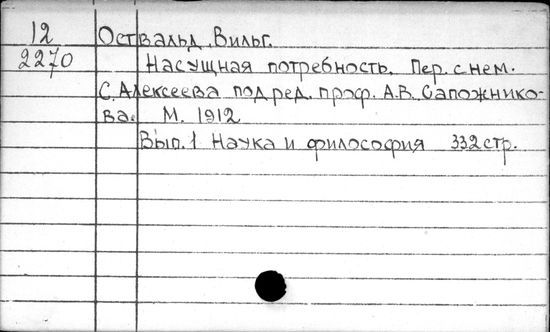 12 Оствальд Вильг.
2270 Насущная потребность. Пер. с нем.
С. Алексеева под ред. проф. А.В. Сапожнико-
ва. М. 1912
Вып. 1 Наука и философия 332 стр.